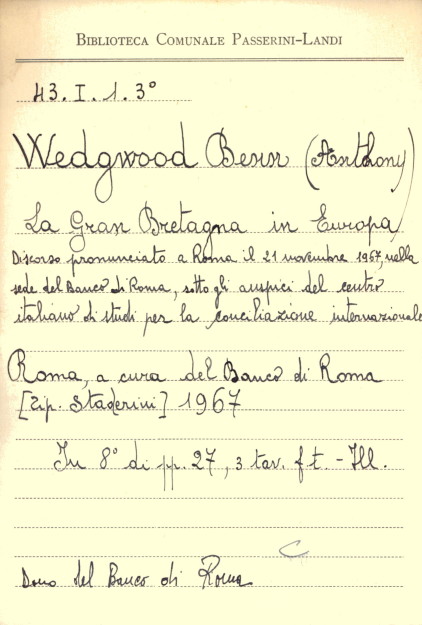 BIBLIOTECA COMUNALE PASSERINI-LANDI
43. I. 1. 3°
Wedgwood Benn (Anthony)
La Gran Bretagna in Europa
Discorso pronunciato a Roma il 21 novembre 1967, nella
sede del Banco di Roma, sotto gli auspici del centro
italiano di studi per la conciliazione internazionale
Roma, a cura del Banco di Roma
[Tip. Staderini] 1967
In 8° di pp. 27, 3 tav. f. t. - Ill.
Dono del Banco di Roma